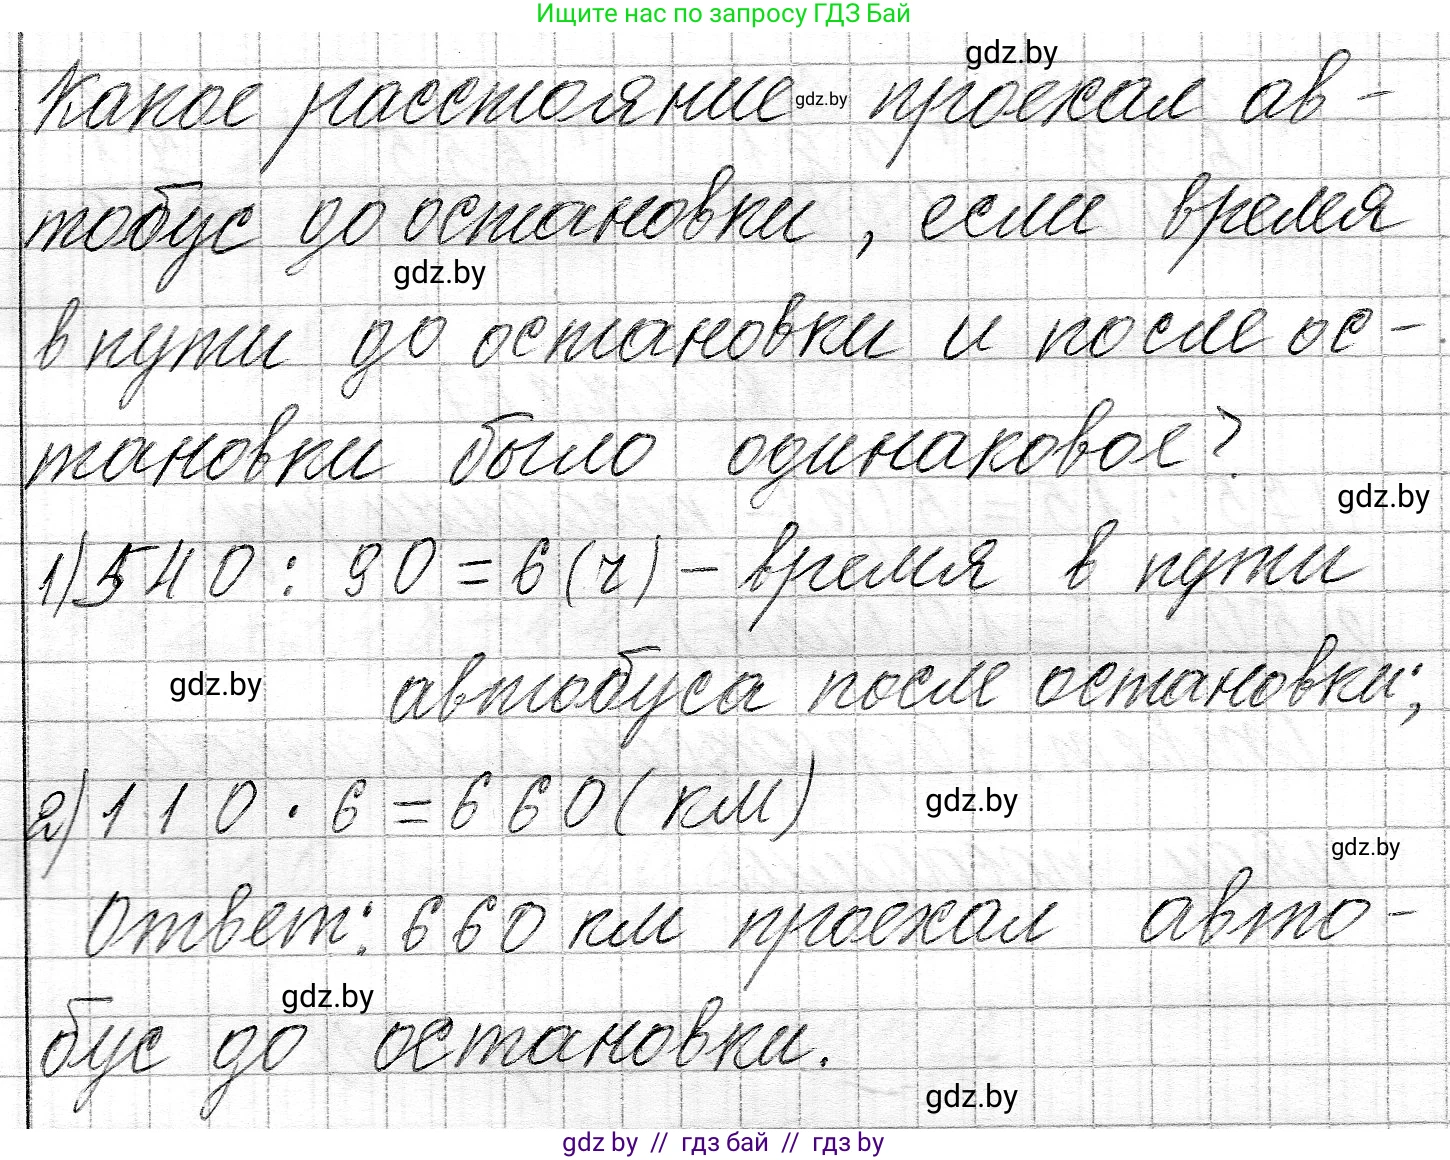 Ищите нас по запросу ГДЗ Бай
gdz.by
Какое расстояние gdz.by проехал ав-
тобус до остановки, если время
gdz.by
в пути до остановки и после ос-
тановки было одинаковое?
gdz.by
1) 540 : 90 = 6 (ч) – время в пути
gdz.by автобуса после остановки;
2) 110 · 6 = 660 (км) gdz.by
gdz.by
Ответ: 660 км проехал авто-
gdz.by
бус до остановки.
gdz.by
gdz by // гдз бай // гдз by